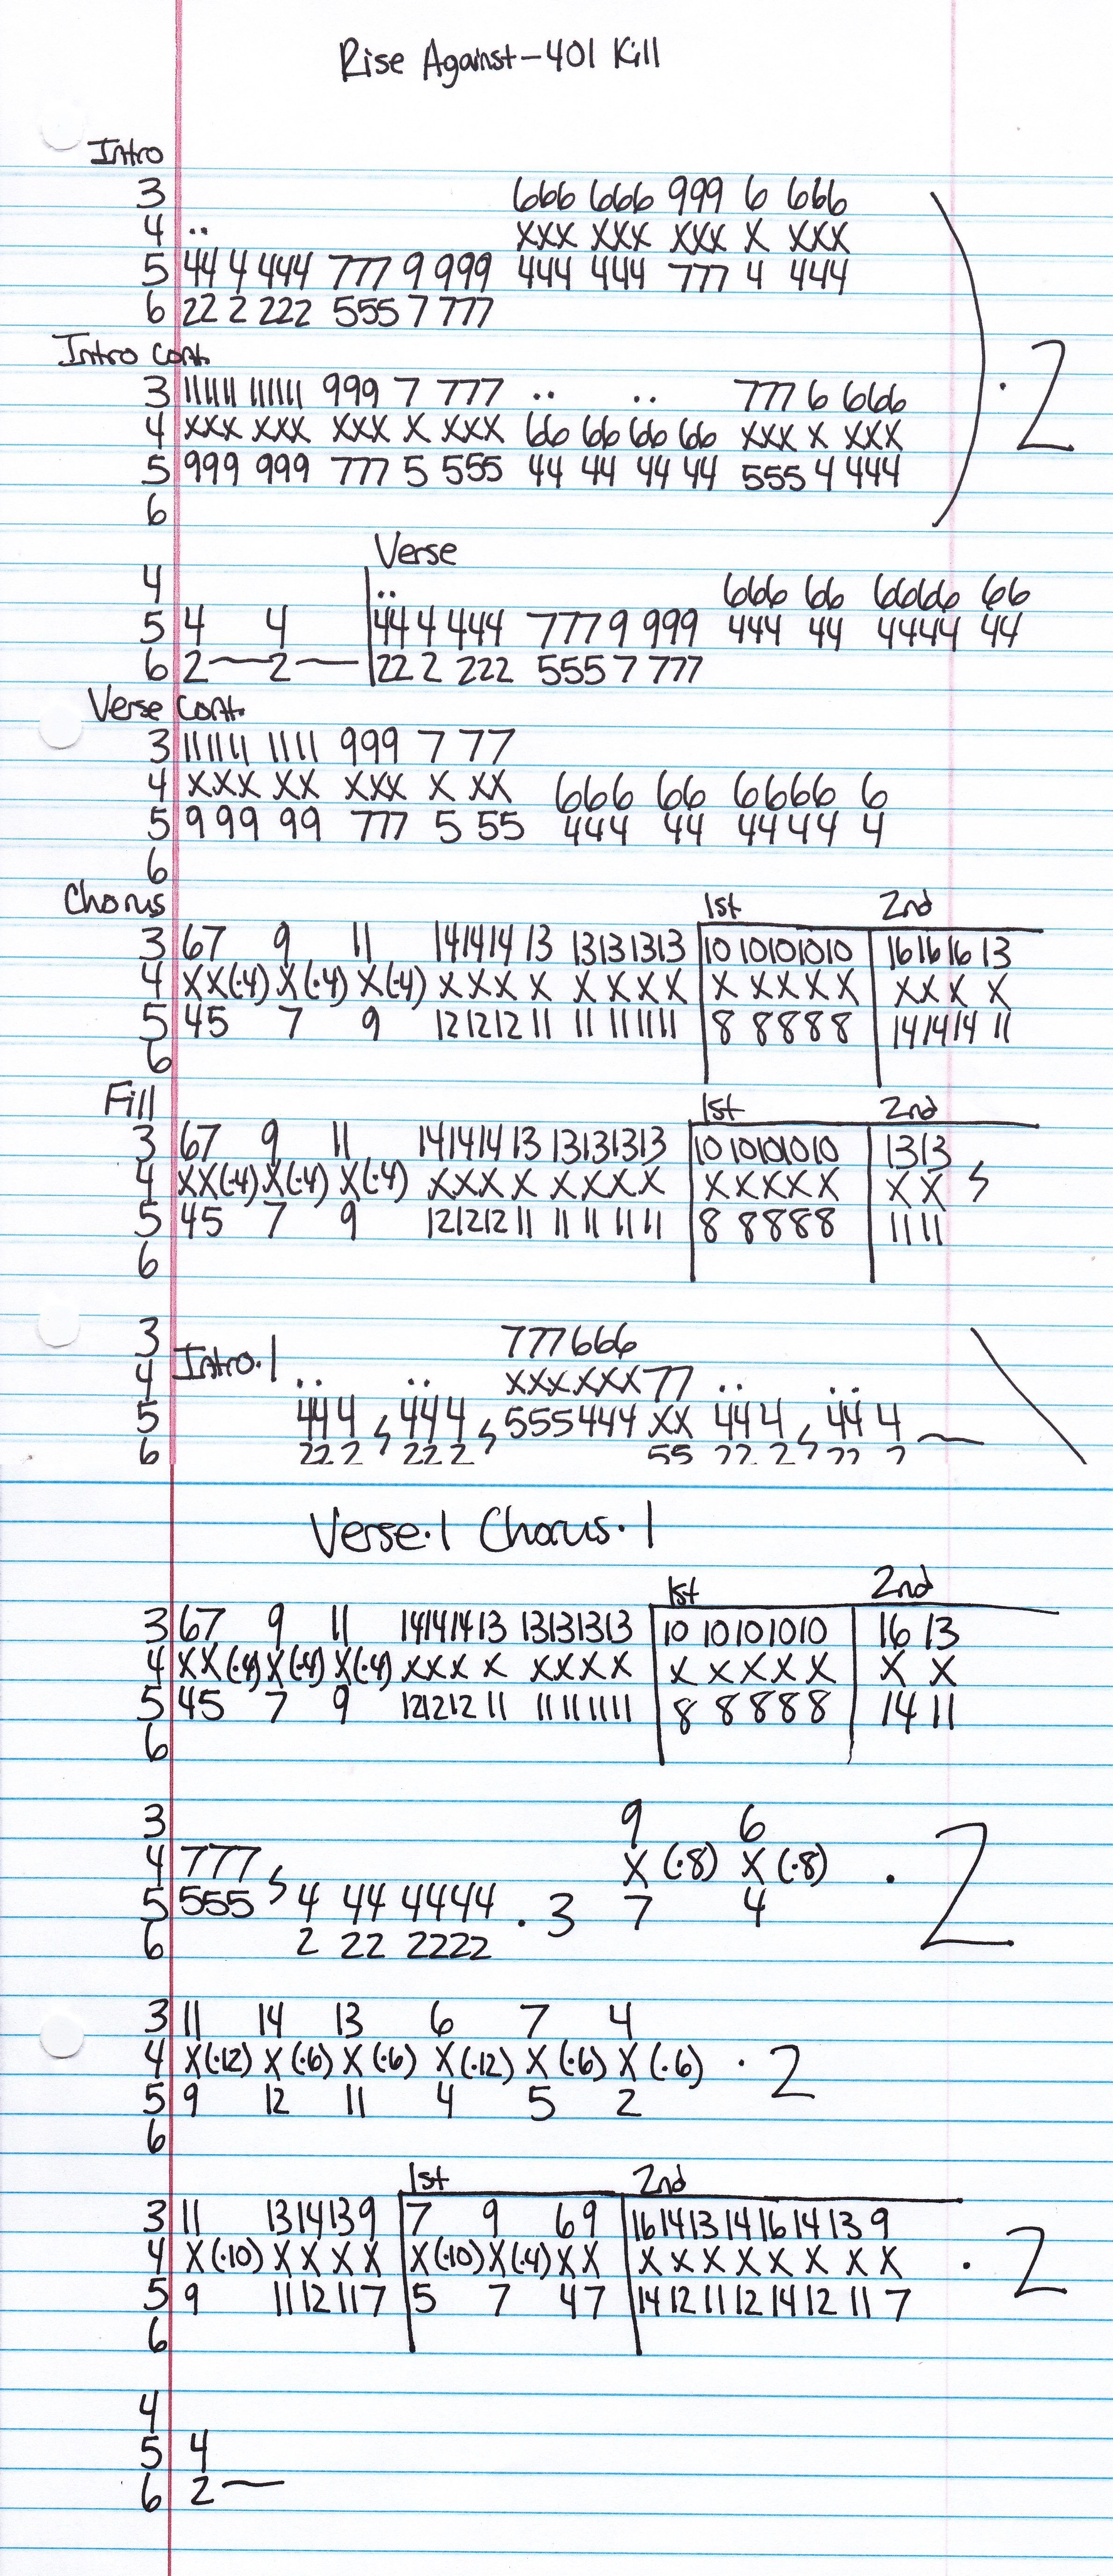 Rise Against-401 Kill
Intro
3 666 666 999 6 666
4 .. XXX XXX XXX X XXX
5 44 4 444 777 9 999 444 444 777 4 444
6 22 2 222 555 7 777
Intro Cont.
3 111111 111111 999 7 777 .. .. 777 6 666
4 XXX XXX XXX X XXX 66 66 66 66 XXX X XXX
5 999 999 777 5 555 44 44 44 44 555 4 444
6
·2
Verse
4 .. 666 66 6666 66
5 4 4 44 4 444 777 9 999 444 44 4444 44
6 2—2— 22 2 222 555 7 777
Verse Cont.
3 111111 1111 999 7 77
4 XXX XX XXX X XX 666 66 6666 6
5 999 99 777 5 55 444 44 4444 4
6
Chorus 1st 2nd
3 67 9 11 141414 13 13131313 10 10101010 161616 13
4 XX(·4) X(·4) X(·4) XXX X XXXX X XXXX XXX X
5 45 7 9 121212 11 11 111111 8 8888 141414 11
6
Fill 1st 2nd
3 67 9 11 141414 13 13131313 10 10101010 1313
4 XX(·4) X(·4) X(·4) XXX X XXXX XXXXX XX
5 45 7 9 121212 11 11 11 11 11 8 8888 11 11
6
3 777666
4 Intro·1 .. .. XXXXXX77 .. ..
5 44 4 44 4 555444 XX 44 4 44 4
6 22 2 22 2 55 22 2 22 2
Verse·1 Chorus·1
1st 2nd
3 67 9 11 14141413 13131313 10 10101010 16 13
4 XX(·4) X(·4) X(·4) XXX X XXXX X XXXX X X
5 45 7 9 121212 11 11111111 8 8888 14 11
6
3 9 6
4 777 X (·8) X (·8) ·2
5 555 4 44 4444 ·3 7 4
6 2 22 2222
3 11 14 13 6 7 4
4 X(·12) X(·6) X(·6) X(·12) X(·6) X(·6) ·2
5 9 12 11 4 5 2
6
1st 2nd
3 11 1314139 7 9 69 161413141614139
4 X(·10) XXXX X(·10)X(·4)XX XXXXXXXX ·2
5 9 1112117 5 7 47 14121112141211 7
6
4
5 4
6 2—